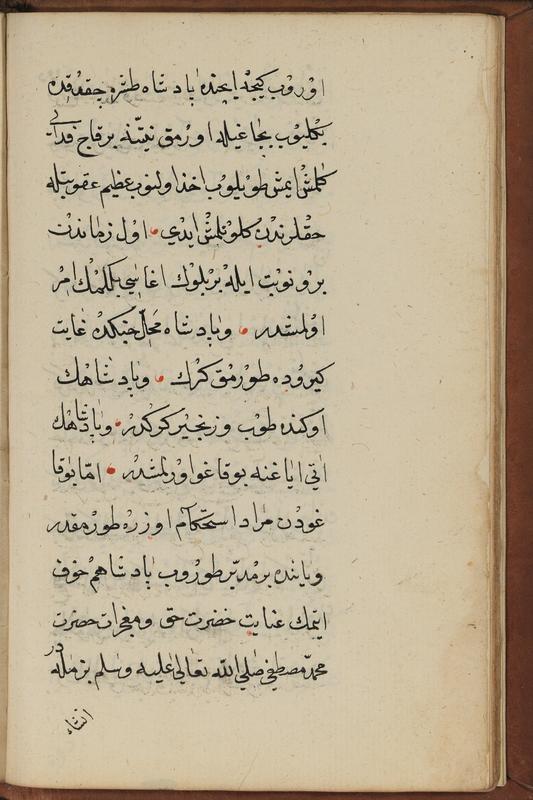 اوروب كيجه ايچنده پادشاه طشره چقدقده
يكليوب بچاغيله اورمق نيتنه برقاج فدائی
كلمش ايمش طويلوب اخذ اولنوب عظيم عقوبتله
حقلرندن كلونلمش ايدی اول زماندن
برو نوبت ايله بر بلوك اغاسی بكلمك امر
اولمشدر و پادشاه محل جنكده غايت
كيروده طورمق كرك و پادشاهك
اوكنده طوپ و زنجير كركدر و پادشاهك
اتی اياغنه بوقاغو اورلمشدر اما بوقا
غودن مراد استحكام اوزره طورمقدر
و ياننده بر مدبر طوروب پادشاهم خوف
ايتمك عنايت حضرت حق و معجزات حضرت
محمد مصطفی صلی الله تعالی عليه وسلم بزمله در
انشاء